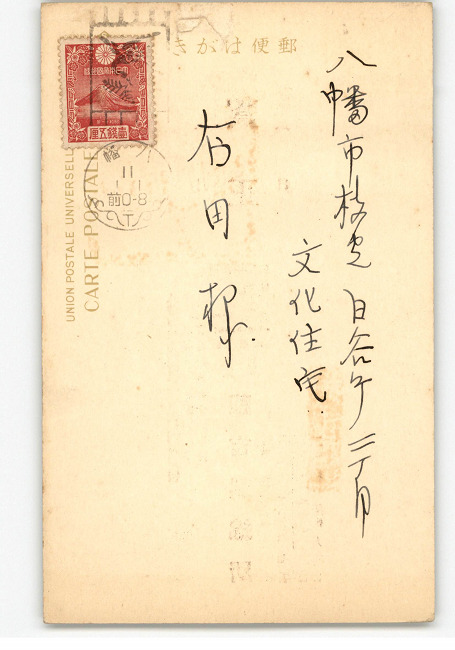 郵便はがき
八幡市枝光日の谷ケ二丁目
文化住宅
右田様
大日本帝国郵便
壹銭五厘
八幡
11
1.1
前0-8
UNION POSTALE UNIVERSELLE
CARTE POSTALE